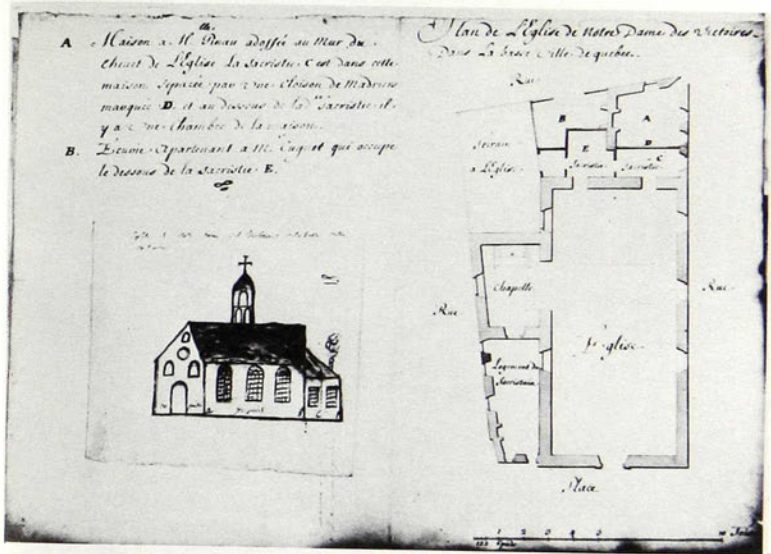 A Maison a Mlle Pinau adossée au Mur du
chevet de L'Eglise La Sacristie C est dans cette
maison separée par une Cloison de Madriers
marquée D. et au dessous de la de sacristie il
y a une chambre de la maison.
B. Ecurie Apartenant a Mr Cuguet qui occupe
le dessous de la Sacristie E.
Plan de L'Eglise de Notre Dame des Victoires
Dans La basse Ville de quebec.
Rue
B
A
E
D
C
Sacristie
Sacristie
Terrain
a L'Eglise
Chapelle
Rue
Rue
Eglise
Logement du
Sacristain
Place
1 2 3 4 5